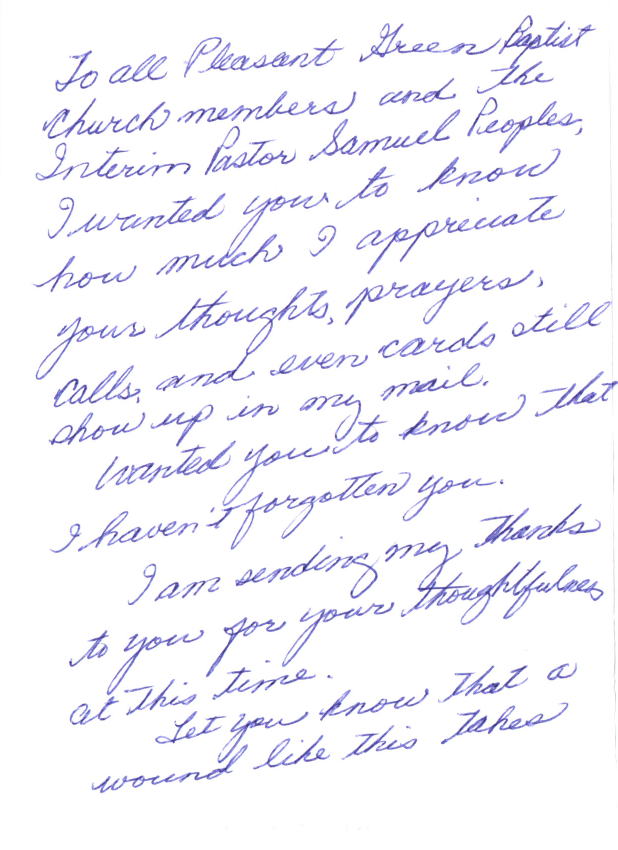 To all Pleasant Green Baptist
Church members and the
Interim Pastor Samuel Peoples,
I wanted you to know
how much I appreciate
your thoughts, prayers,
calls, and even cards still
show up in my mail.
Wanted you to know that
I haven't forgotten you.
I am sending my thanks
to you for your thoughtfulness
at this time.
Let you know that a
wound like this takes